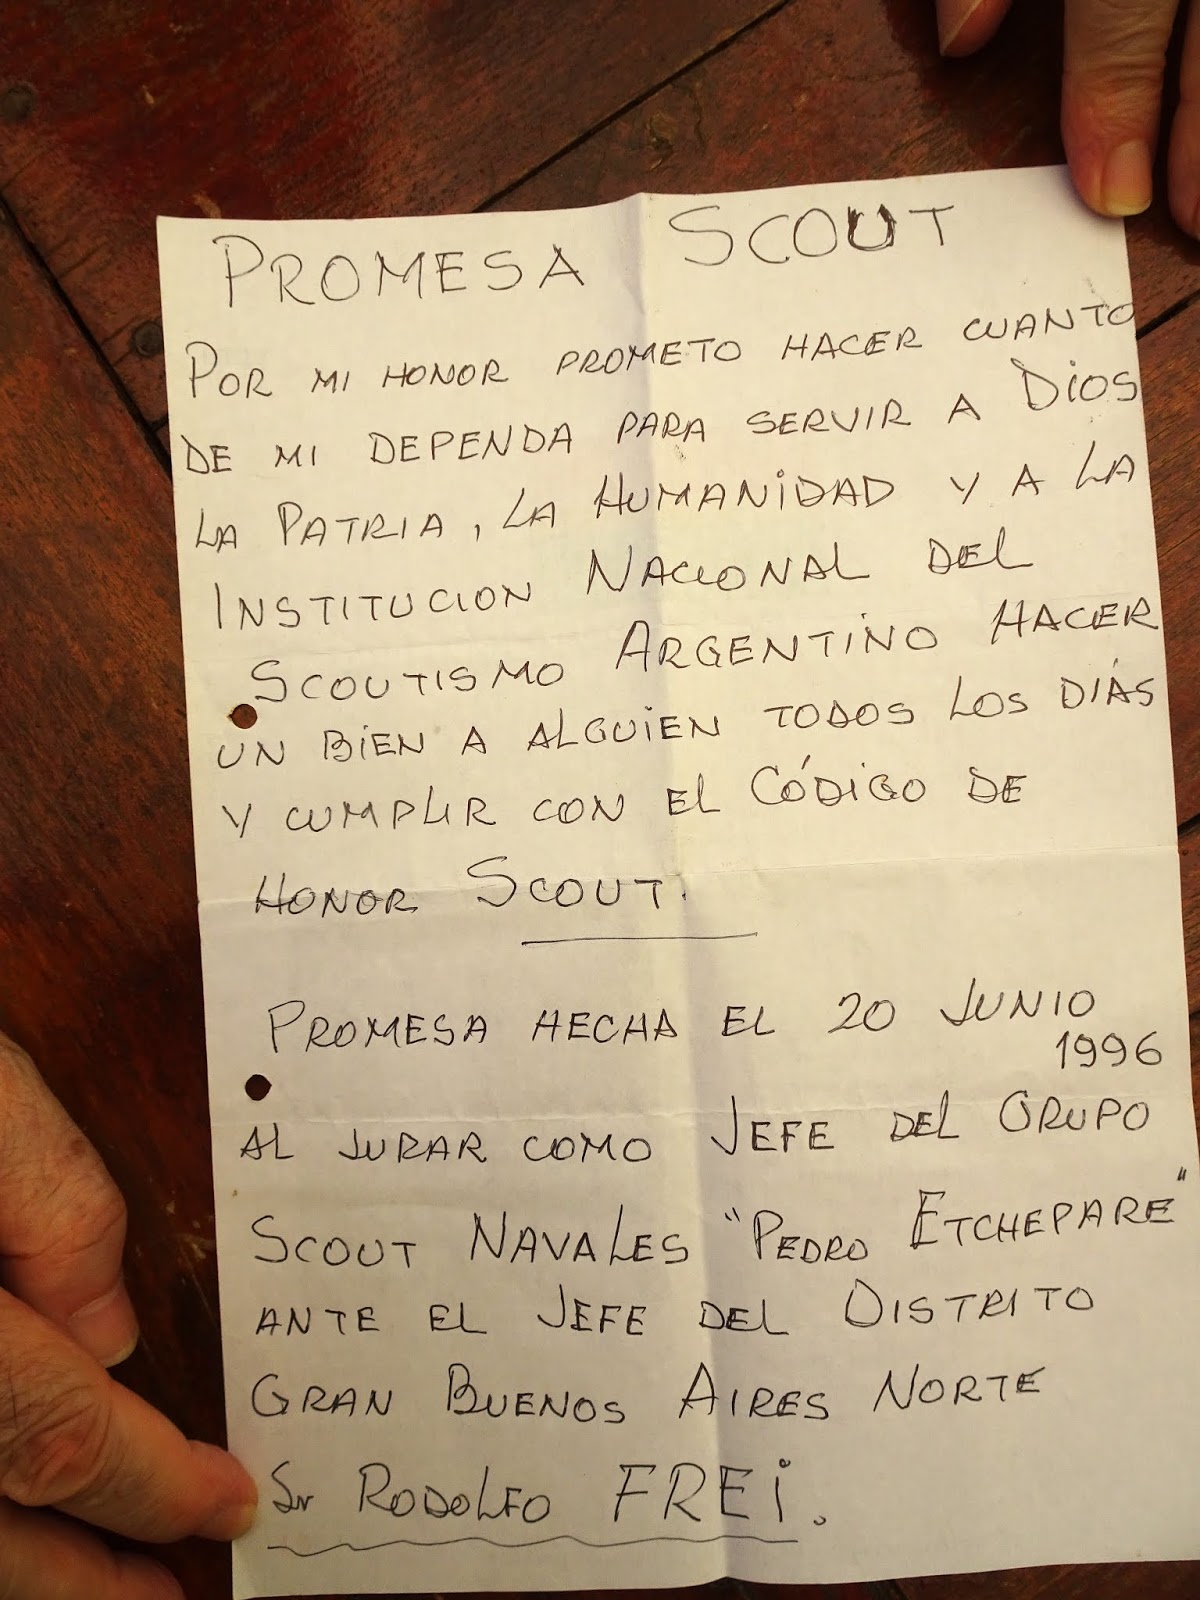 PROMESA SCOUT
POR MI HONOR PROMETO HACER CUANTO
DE MI DEPENDA PARA SERVIR A DIOS
LA PATRIA, LA HUMANIDAD Y A LA
INSTITUCION NACIONAL DEL
SCOUTISMO ARGENTINO HACER
UN BIEN A ALGUIEN TODOS LOS DIÁS
Y CUMPLIR CON EL CÓDIGO DE
HONOR SCOUT.
PROMESA HECHA EL 20 JUNIO
1996
AL JURAR COMO JEFE DEL GRUPO
SCOUT NAVALES "PEDRO ETCHEPARE"
ANTE EL JEFE DEL DISTRITO
GRAN BUENOS AIRES NORTE
Sr RODOLFO FREI.